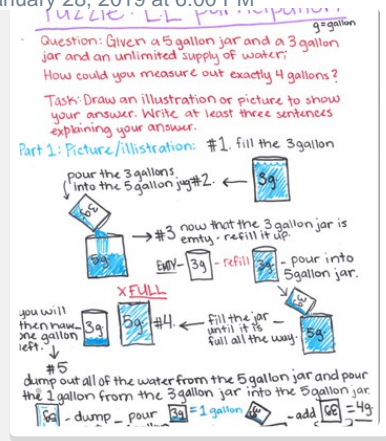 anuary 28, 2019 at 6:00 PM
Puzzle: participation
g=gallon
Question: Given a 5 gallon jar and a 3 gallon
jar and an unlimited supply of water;
How could you measure out exactly 4 gallons?
Task: Draw an illustration or picture to show
your answer. Write at least three sentences
explaining your answer.
Part 1: Picture/illistration: #1. fill the 3gallon
pour the 3 gallons
into the 5gallon jug #2. 3g
3g
5g
#3 now that the 3 gallon jar is
emty - refill it up.
EMTY - 3g - refill 3g - pour into
5gallon jar.
3g
X FULL
you will
then have
one gallon
left.
3g 5g #4. fill the jar
until it is
full all the way. 5g
#5
dump out all of the water from the 5gallon jar and pour
the 1 gallon from the 3gallon jar into the 5gallon jar.
5g - dump - pour 3g = 1 gallon - add = 4g